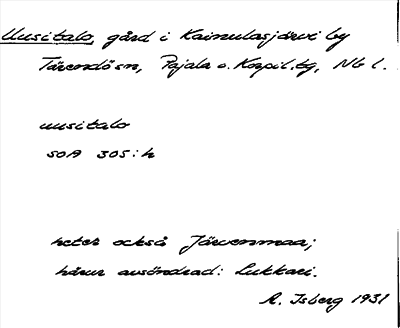 Uusitalo, gård i Kainulasjärvi by
Tärendö sn, Pajala o. Korpil. tg, Nb l.
uusitalo
SOA 305: h
heter också Järvenmaa;
härur avsöndrad: Lukkari.
R. Isberg 1931